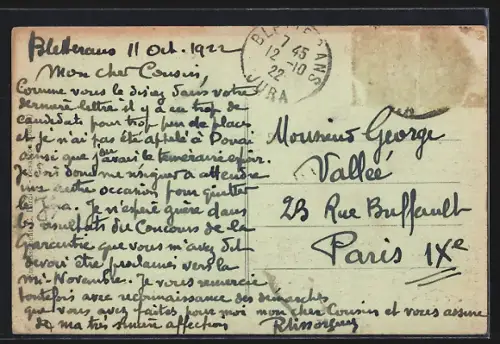 Bletterans 11 Oct. 1922
Mon cher Cousin,
Comme vous le disiez dans votre
dernière lettre il y a eu trop de
candidats pour trop peu de places
et je n'ai pas été appelé à Douai
ainsi que j'avais le téméraire espoir.
Je dois donc me résigner à attendre
une autre occasion pour quitter
le Jura. Je n'espère guère dans
les résultats du Concours de la
Garantie que vous m'avez dit
devoir être proclamés vers la
mi-Novembre. Je vous remercie
toutefois avec reconnaissance des démarches
que vous avez faites pour moi mon cher Cousin et vous assure
de ma très sincère affection
BLETTERANS
7 45
12-10
22
JURA
Monsieur George
Vallée
23 Rue Buffault
Paris IXe